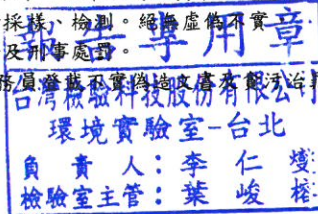 採樣、檢測。絕無虛偽不實
報告專用章
及刑事處罰。
務員登載不實偽造文書及貪污治
台灣檢驗科技股份有限公司
環境實驗室-台北
負責人：李仁燮
檢驗室主管：葉峻榕